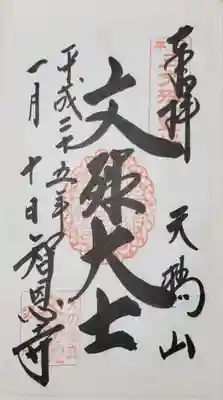 奉拝
天橋山
文殊大士
平成二十五年
一月十日
智恩寺